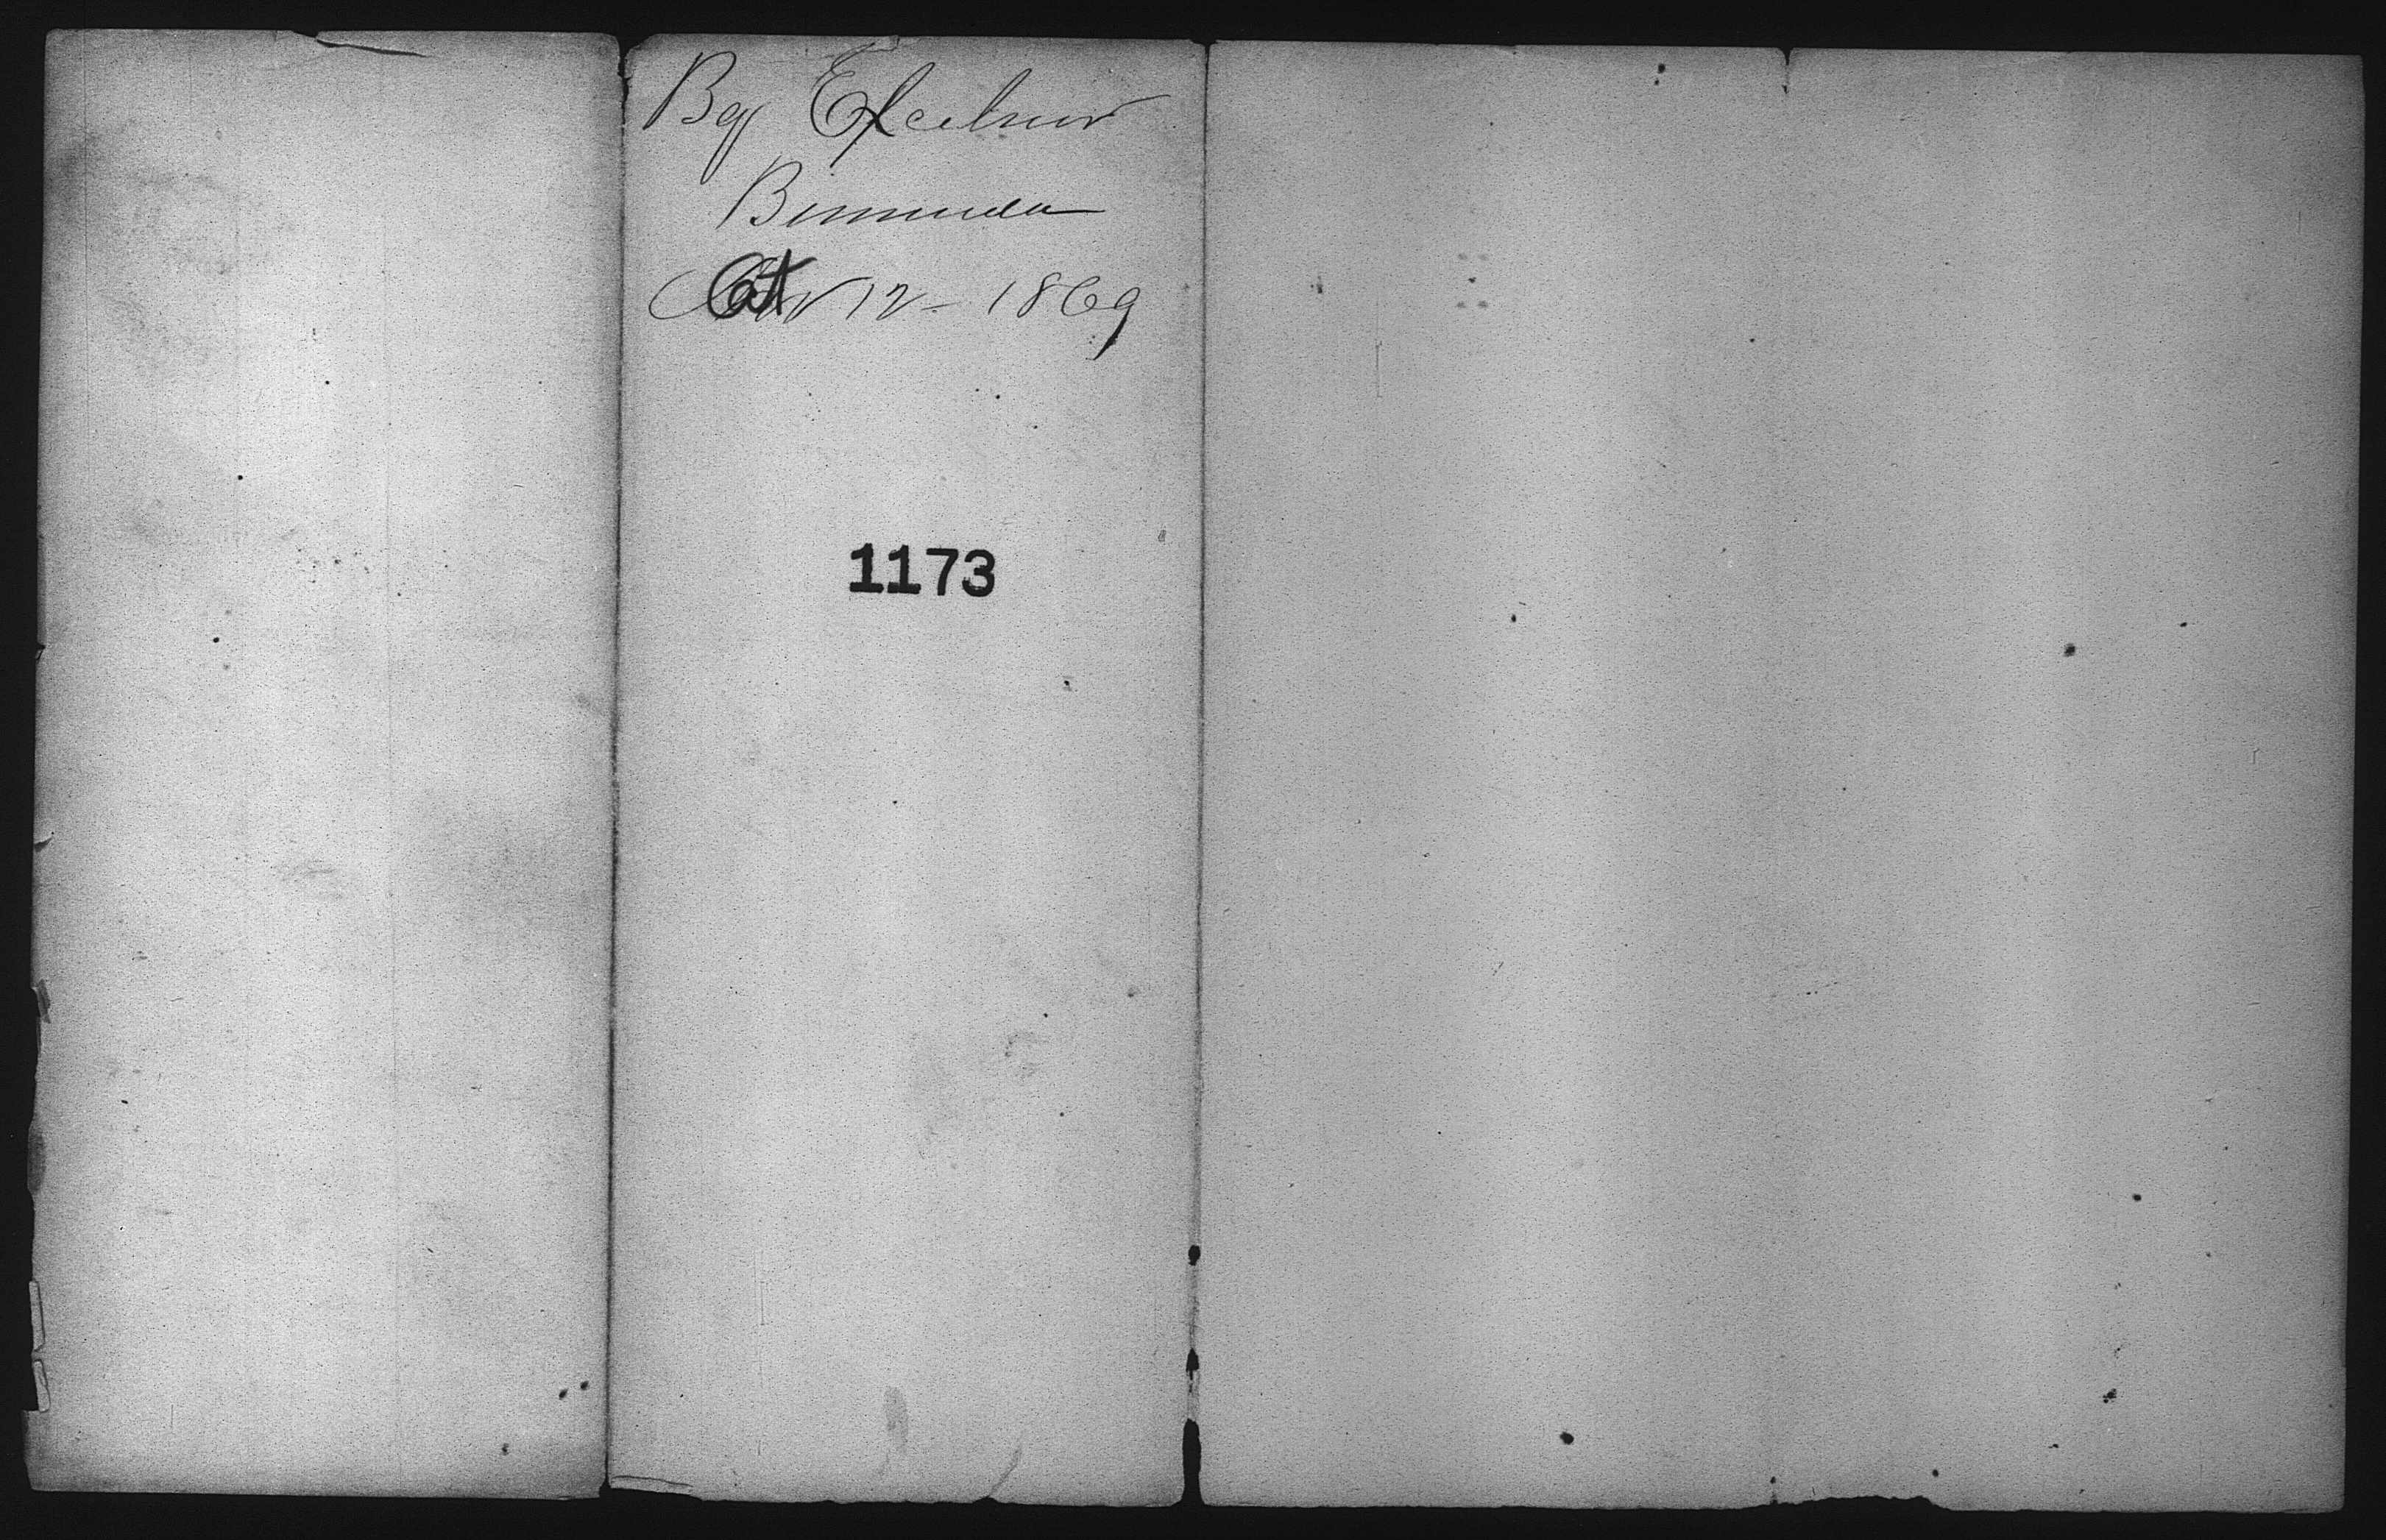 Bg Excelsior
Bermuda
Oct 12 - 1869
1173